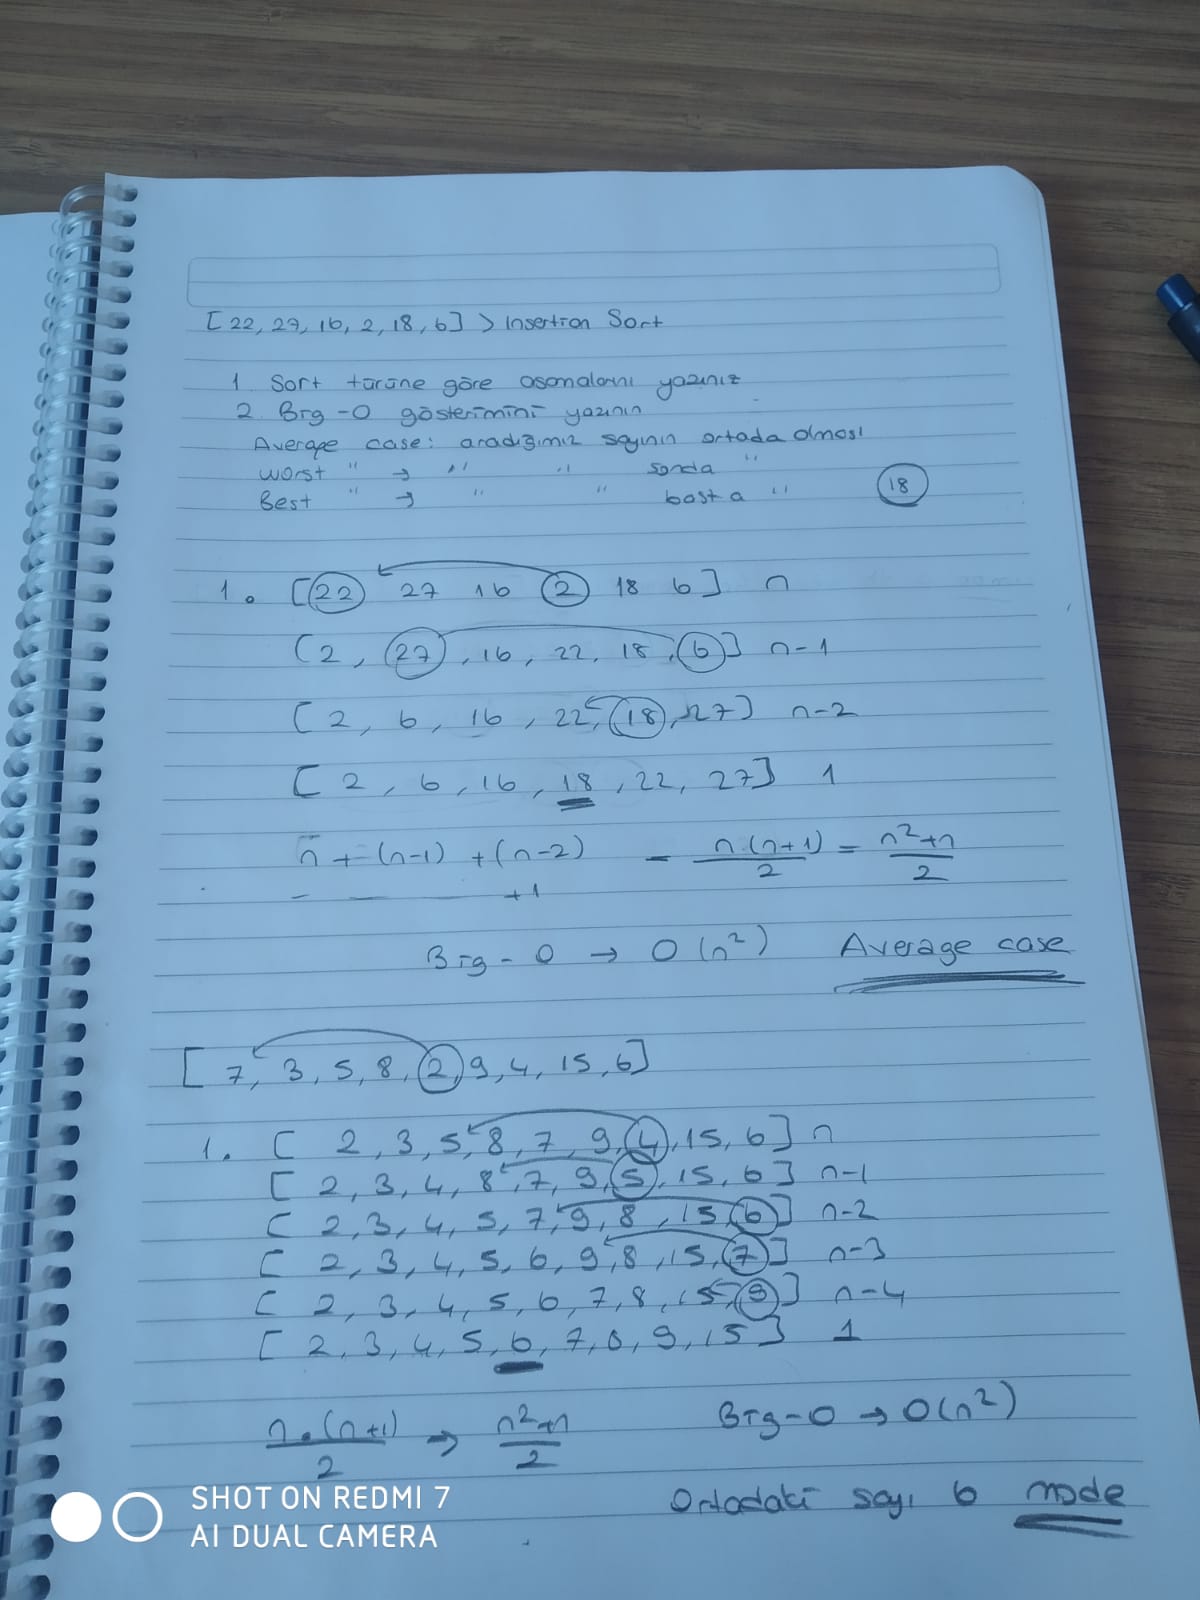 [22, 27, 16, 2, 18, 6] > Insertion Sort
1 Sort türüne göre aşamalarını yazınız
2. Big-O gösterimini yazının
Average case: aradığımız sayının ortada olması
worst " → " " sonda "
Best " → " " başta " 18
1. [22 27 16 2 18 6] n
[2, 27, 16, 22, 18, 6] n-1
[2, 6, 16, 22, 18, 27] n-2
[2, 6, 16, 18, 22, 27] 1
n + (n-1) + (n-2) - n.(n+1)/2 = n²+n/2
- - +1
Big-O → O(n²) Average case
[7, 3, 5, 8, 2, 9, 4, 15, 6]
1. [2, 3, 5, 8, 7, 9, 4, 15, 6] n
[2, 3, 4, 8, 7, 9, 5, 15, 6] n-1
[2, 3, 4, 5, 7, 9, 8, 15, 6] n-2
[2, 3, 4, 5, 6, 9, 8, 15, 7] n-3
[2, 3, 4, 5, 6, 7, 8, 15, 9] n-4
[2, 3, 4, 5, 6, 7, 8, 9, 15] 1
n.(n+1)/2 → n²+n/2 Big-O → O(n²)
Ortadaki sayı 6 mode
SHOT ON REDMI 7
AI DUAL CAMERA